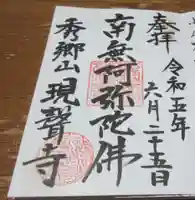 奉拝
令和五年
六月二十五日
南無阿弥陀佛
秀郷山現聲寺